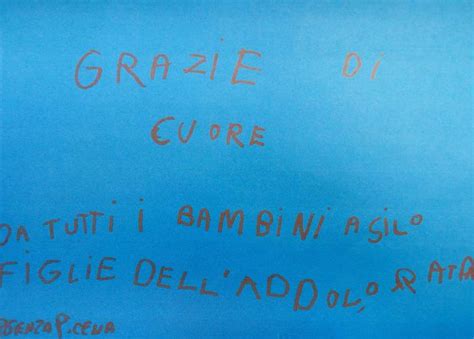 GRAZIE DI
CUORE
DA TUTTI I BAMBINI ASILO
FIGLIE DELL'ADDOLORATA